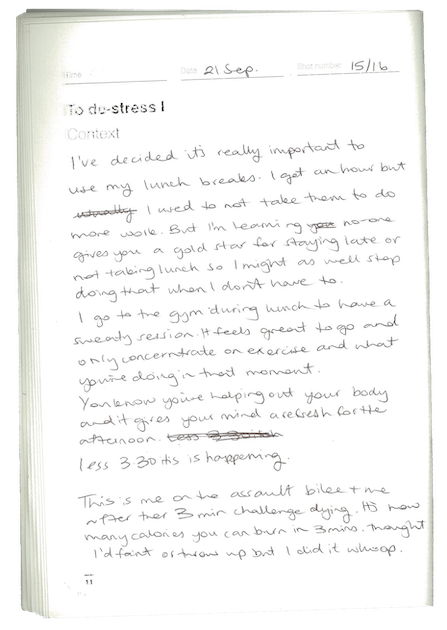 Time Date 21 Sep. Shot number 15/16
To de-stress I
Context
I've decided it's really important to
use my lunch breaks. I get an hour but
usually I used to not take them to do
more work. But I'm learning you no-one
gives you a gold star for staying late or
not taking lunch so I might as well stop
doing that when I don't have to.
I go to the gym during lunch to have a
sweaty session. It feels great to go and
only concentrate on exercise and what
you're doing in that moment.
You know you're helping out your body
and it gives your mind a refresh for the
afternoon. Less 3:30itis
less 3:30itis is happening.
This is me on the assault bike + me
after their 3 min challenge dying. It's how
many calories you can burn in 3 mins. Thought
I'd faint or throw up but I did it whoop.
11